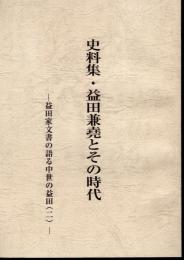 史料集・益田兼堯とその時代
―益田家文書の語る中世の益田(二)―